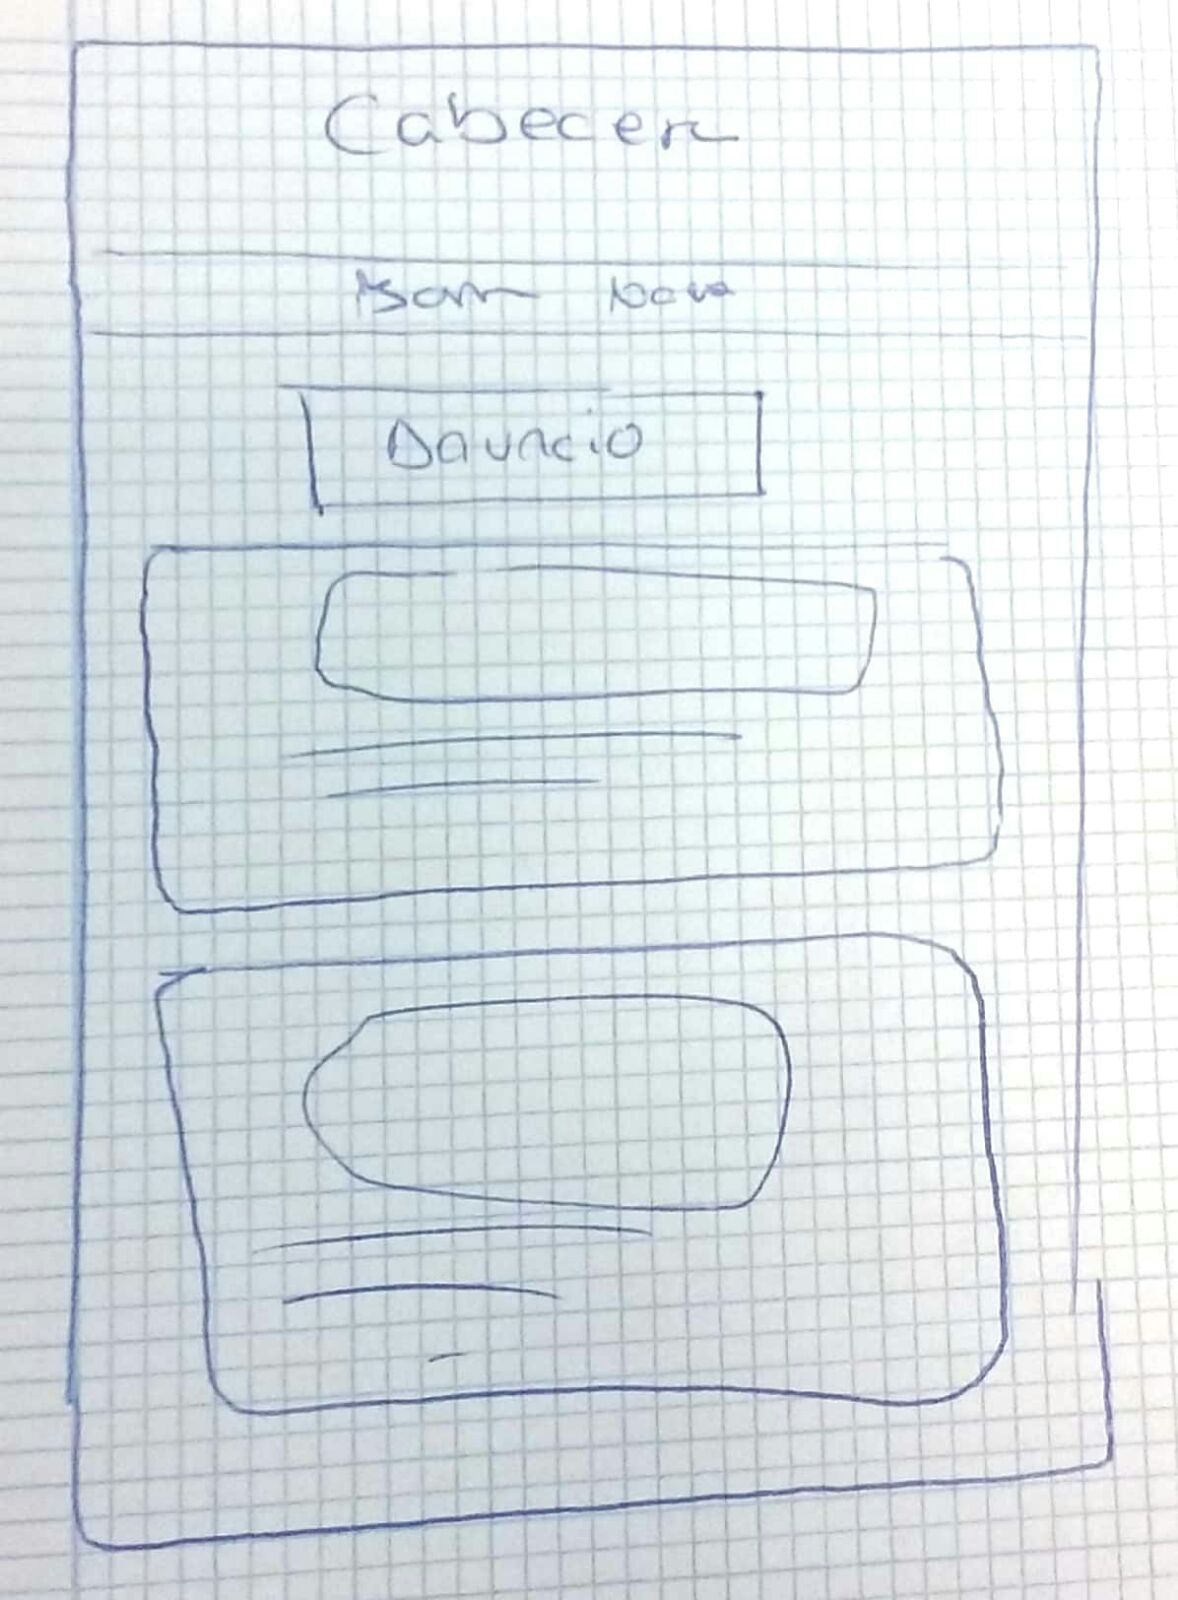 Cabecera
Barra Nav
Anuncio